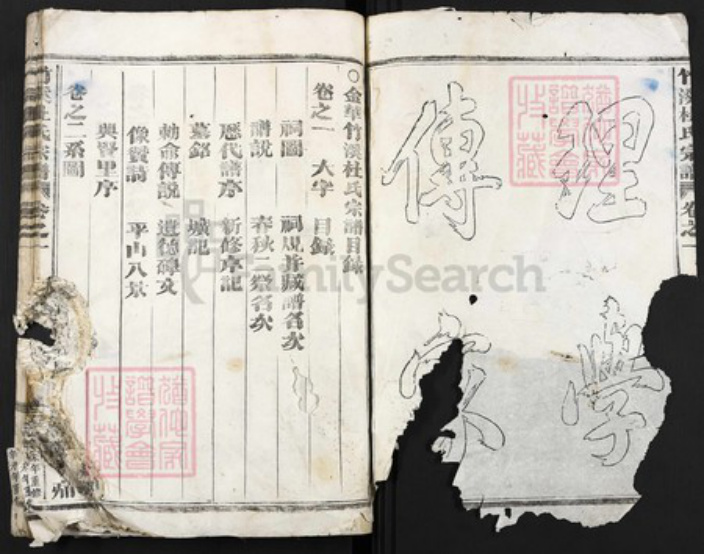 竹溪杜氏宗譜 卷之一
理學
傳家
○金華竹溪杜氏宗譜目錄
卷之一 大字 目錄
祠圖 祠規并藏譜名次
譜說 春秋二祭名次
歷代譜序 新修序記
墓銘 城記
勅命傳說 道德碑文
像贊詩 平山八景
興賢里序
卷之二系圖
竹溪杜氏宗譜 卷之一
FamilySearch